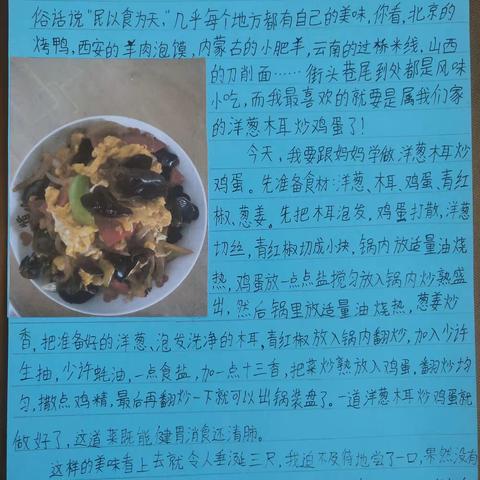 俗话说"民以食为天，"几乎每个地方都有自己的美味，你看，北京的
烤鸭，西安的羊肉泡馍，内蒙古的小肥羊，云南的过桥米线，山西
的刀削面……街头巷尾到处都是风味
小吃，而我最喜欢的就要是属我们家
的洋葱木耳炒鸡蛋了！
今天，我要跟妈妈学做洋葱木耳炒
鸡蛋。先准备食材：洋葱、木耳、鸡蛋、青红
椒、葱姜。先把木耳泡发，鸡蛋打散，洋葱
切丝，青红椒切成小块，锅内放适量油烧
热，鸡蛋放一点点盐搅匀放入锅内炒熟盛
出，然后锅里放适量油烧热，葱姜炒
香，把准备好的洋葱、泡发洗净的木耳，青红椒放入锅内翻炒，加入少许
生抽，少许蚝油，一点食盐，加一点十三香，把菜炒熟放入鸡蛋，翻炒均
匀，撒点鸡精，最后再翻炒一下就可以出锅装盘了。一道洋葱木耳炒鸡蛋就
做好了，这道菜既能健胃消食还清肺。
这样的美味看上去就令人垂涎三尺，我迫不及待地尝了一口，果然没有